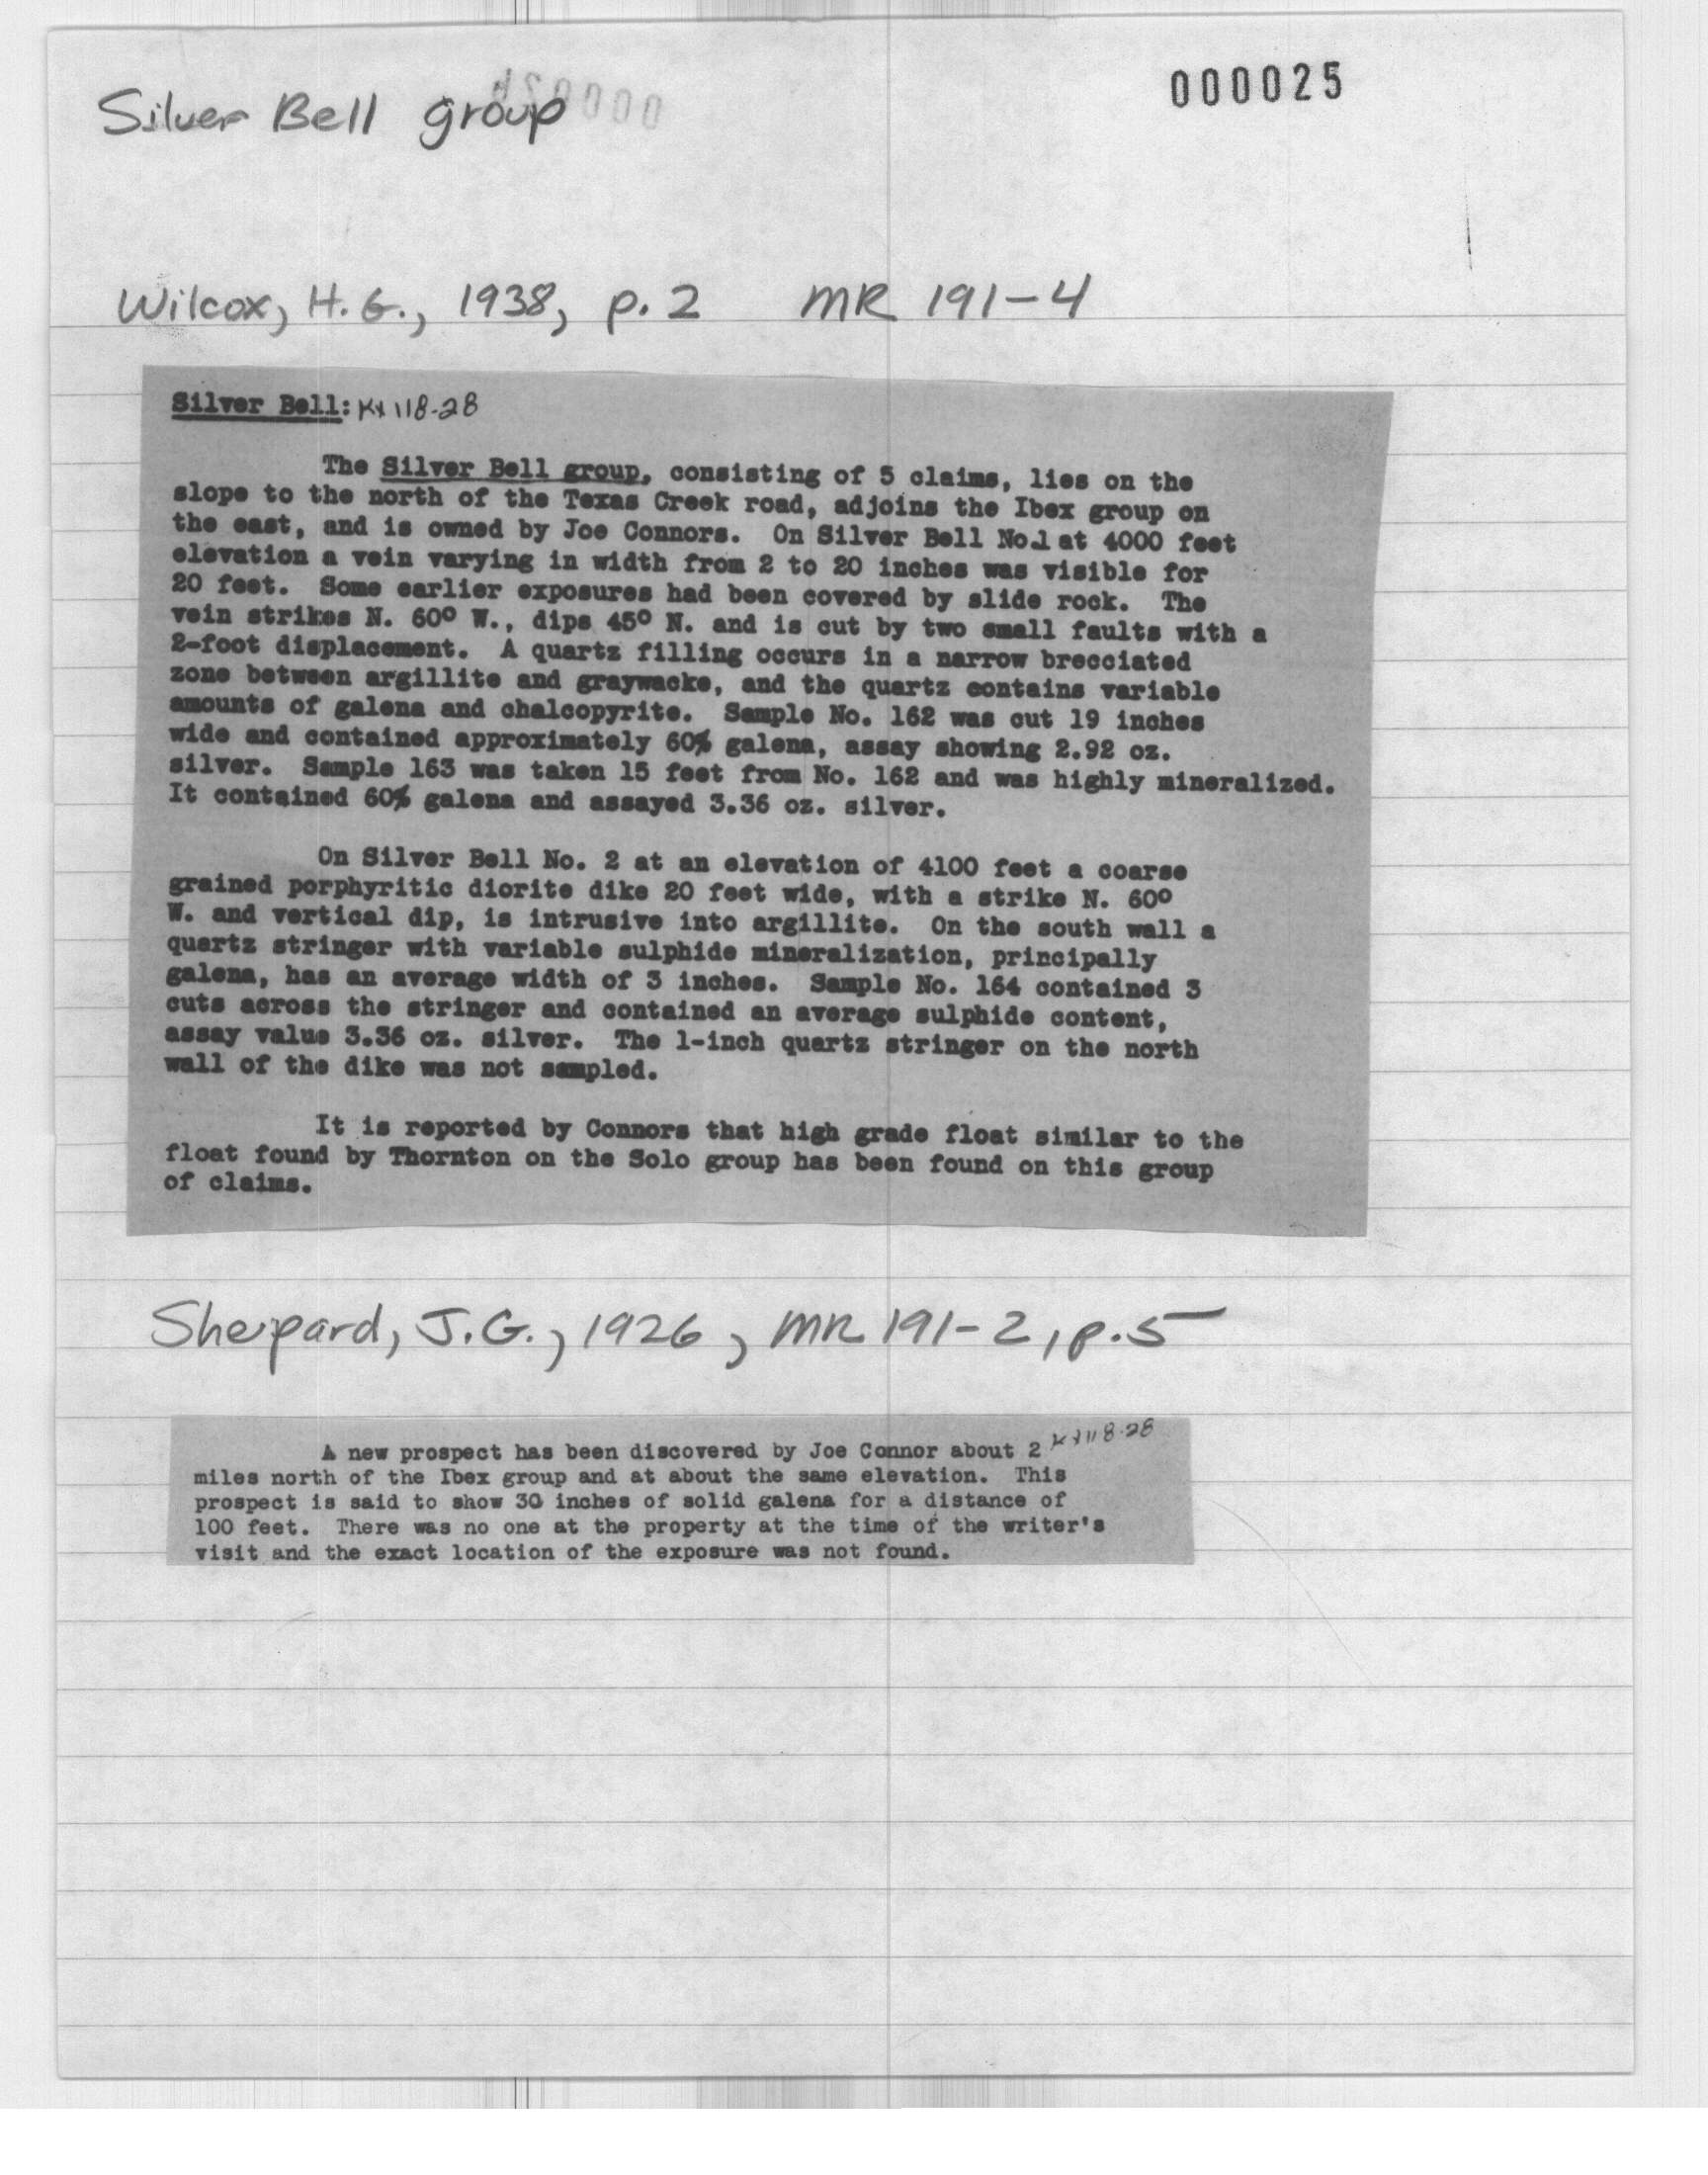 000025
Silver Bell group
Wilcox, H. G., 1938, p. 2 MR 191-4
Silver Bell: Kx 118-28
The Silver Bell group, consisting of 5 claims, lies on the
slope to the north of the Texas Creek road, adjoins the Ibex group on
the east, and is owned by Joe Connors. On Silver Bell No.1 at 4000 feet
elevation a vein varying in width from 2 to 20 inches was visible for
20 feet. Some earlier exposures had been covered by slide rock. The
vein strikes N. 60° W., dips 45° N. and is cut by two small faults with a
2-foot displacement. A quartz filling occurs in a narrow brecciated
zone between argillite and graywacke, and the quartz contains variable
amounts of galena and chalcopyrite. Sample No. 162 was cut 19 inches
wide and contained approximately 60% galena, assay showing 2.92 oz.
silver. Sample 163 was taken 15 feet from No. 162 and was highly mineralized.
It contained 60% galena and assayed 3.36 oz. silver.
On Silver Bell No. 2 at an elevation of 4100 feet a coarse
grained porphyritic diorite dike 20 feet wide, with a strike N. 60°
W. and vertical dip, is intrusive into argillite. On the south wall a
quartz stringer with variable sulphide mineralization, principally
galena, has an average width of 3 inches. Sample No. 164 contained 3
cuts across the stringer and contained an average sulphide content,
assay value 3.36 oz. silver. The 1-inch quartz stringer on the north
wall of the dike was not sampled.
It is reported by Connors that high grade float similar to the
float found by Thornton on the Solo group has been found on this group
of claims.
Shepard, J.G., 1926, MR 191-2, p.5
A new prospect has been discovered by Joe Connor about 2 Kx 118-28
miles north of the Ibex group and at about the same elevation. This
prospect is said to show 30 inches of solid galena for a distance of
100 feet. There was no one at the property at the time of the writer's
visit and the exact location of the exposure was not found.